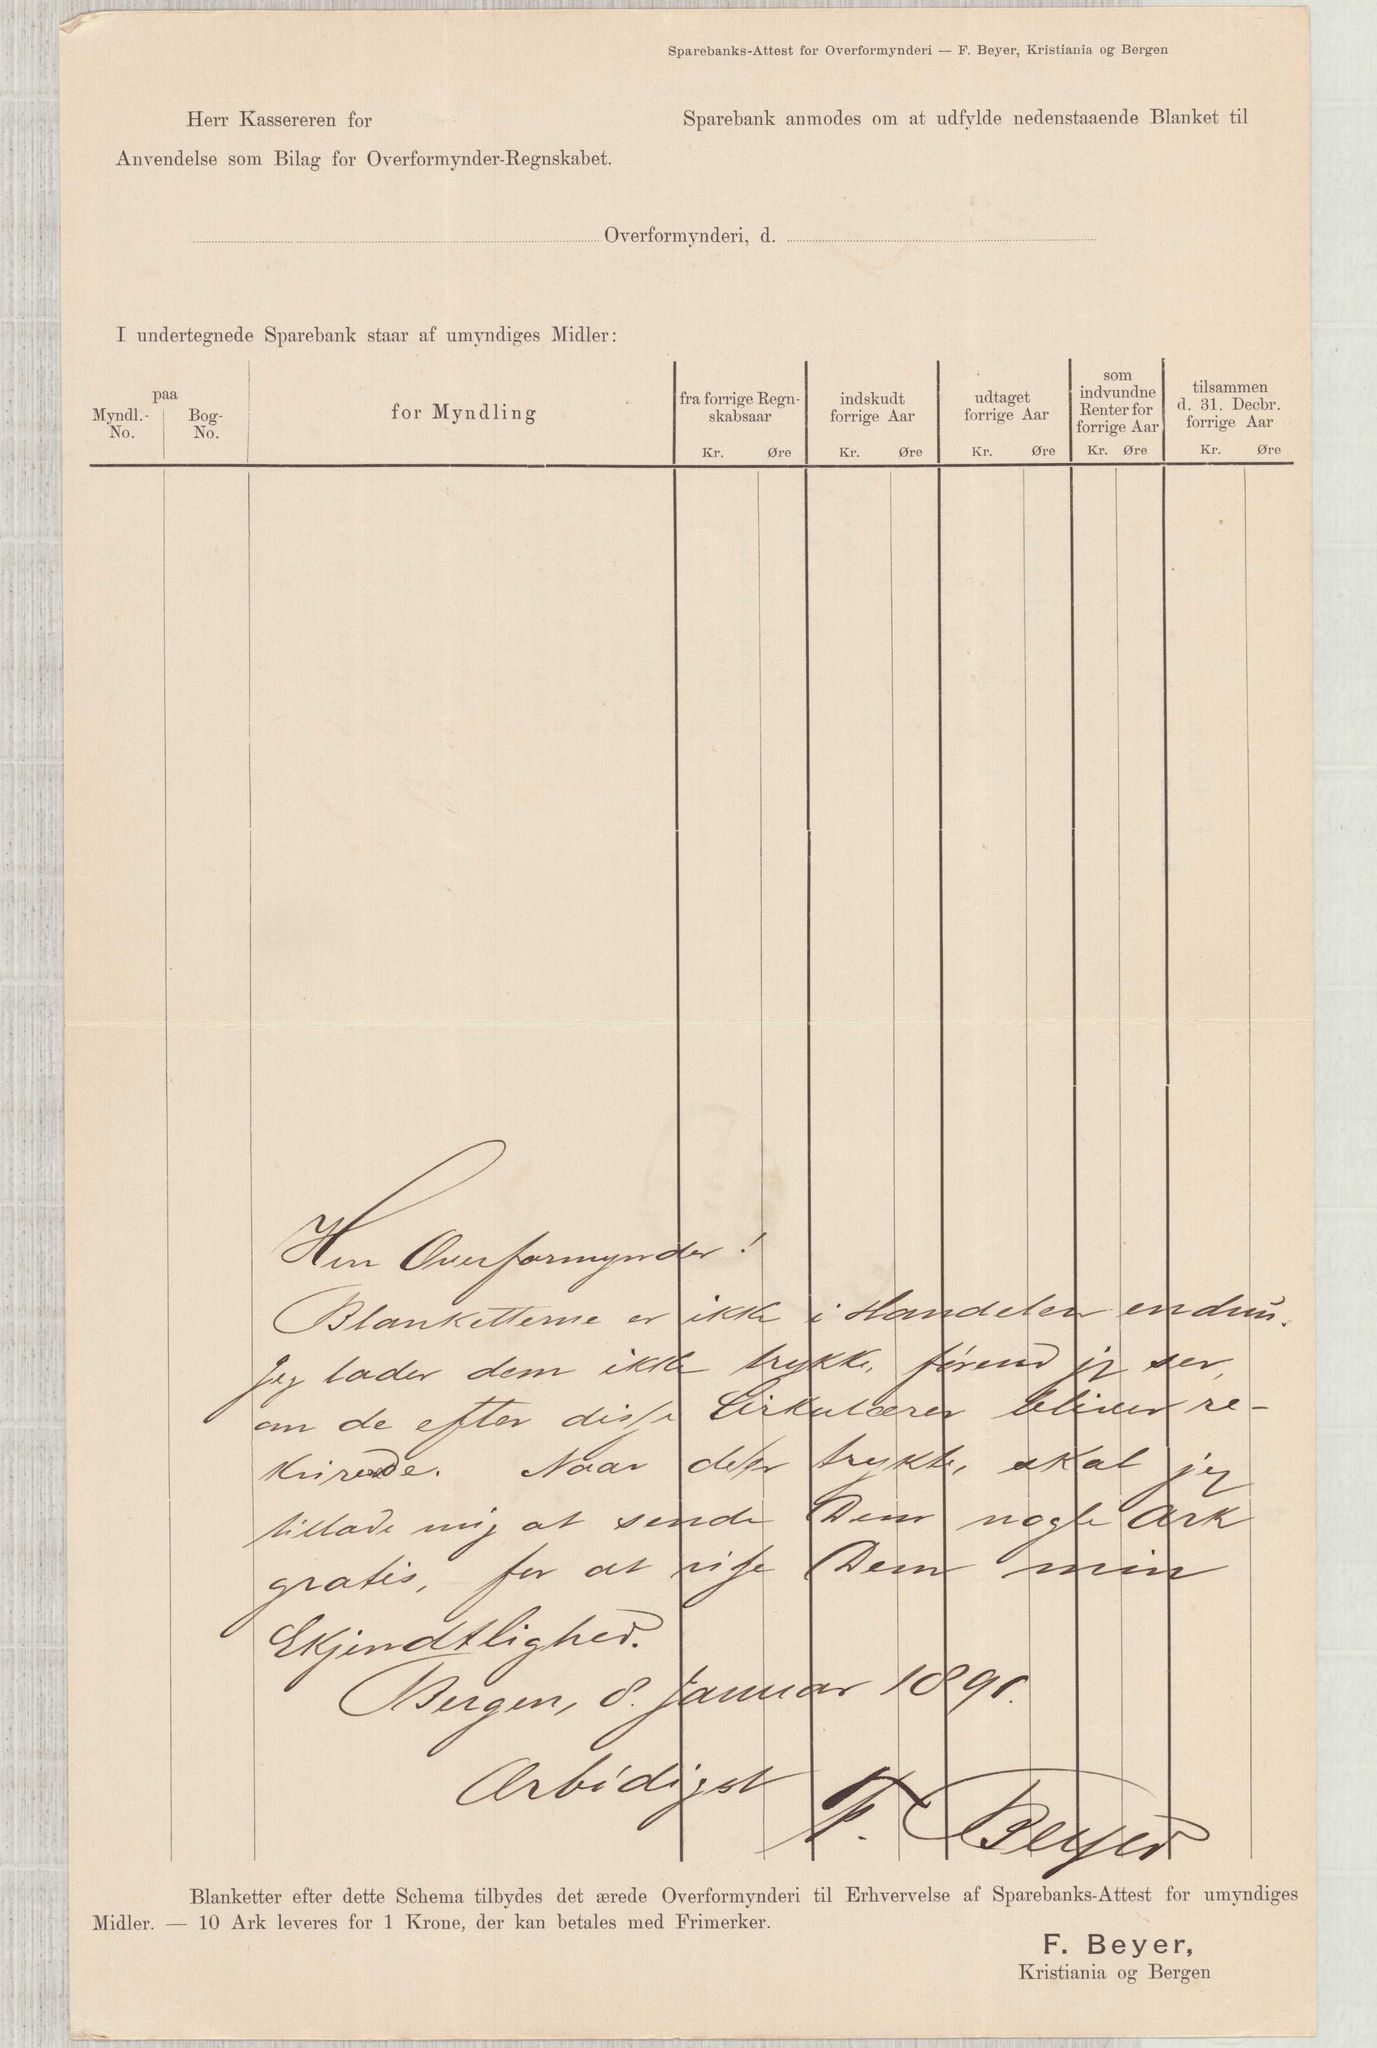 Sparebanks-Attest for Overformynderi — F. Beyer, Kristiania og Bergen
Herr Kassereren for Sparebank anmodes om at udfylde nedenstaaende Blanket til
Anvendelse som Bilag for Overformynder-Regnskabet.
Overformynderi, d.
I undertegnede Sparebank staar af umyndiges Midler:
paa
Myndl.-No.
Bog-No.
for Myndling
fra forrige Regn-
skabsaar
Kr. Øre
indskudt
forrige Aar
Kr. Øre
udtaget
forrige Aar
Kr. Øre
som
indvundne
Renter for
forrige Aar
Kr. Øre
tilsammen
d. 31. Decbr.
forrige Aar
Kr. Øre
Herr Overformynder!
Blanketterne er ikke i Handelen endnu.
Jeg lader dem ikke trykke, førend jeg ser,
om de efter disse Cirkulærer bliver re-
kvirerede. Naar de er trykte, skal jeg
tillade mig at sende Dem nogle Ark
gratis, for at vise Dem min
Erkjendtlighed.
Bergen, 8. Januar 1891.
Ærbødigst F. Beyer
Blanketter efter dette Schema tilbydes det ærede Overformynderi til Erhvervelse af Sparebanks-Attest for umyndiges
Midler. — 10 Ark leveres for 1 Krone, der kan betales med Frimerker.
F. Beyer,
Kristiania og Bergen